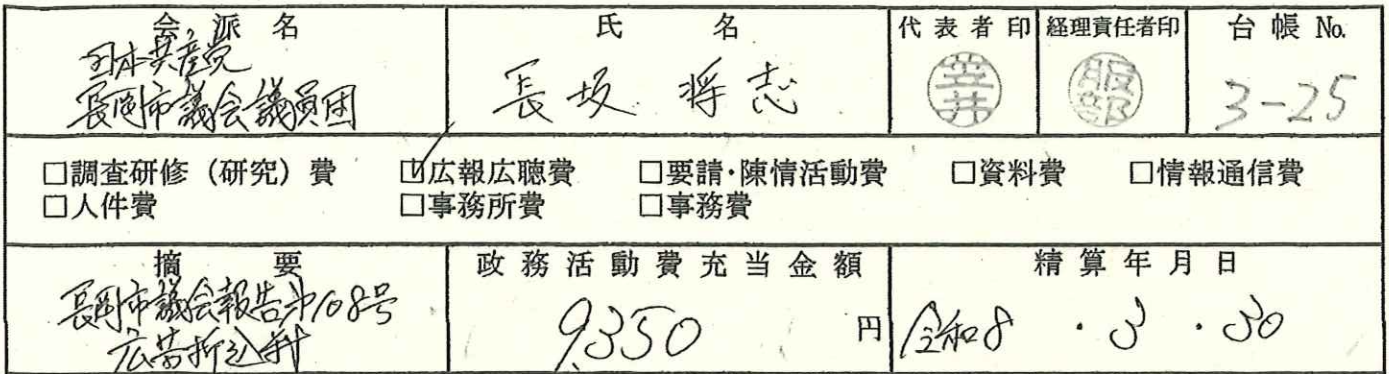 会派名 氏名 代表者印 経理責任者印 台帳No.
日本共産党
長岡市議会議員団
長坂 将志 笠井 服部 3-25
□調査研修（研究）費 ☑広報広聴費 □要請・陳情活動費 □資料費 □情報通信費
□人件費 □事務所費 □事務費
摘要 政務活動費充当金額 精算年月日
長岡市議会報告第108号
折込料
9,350円 令和8・3・30